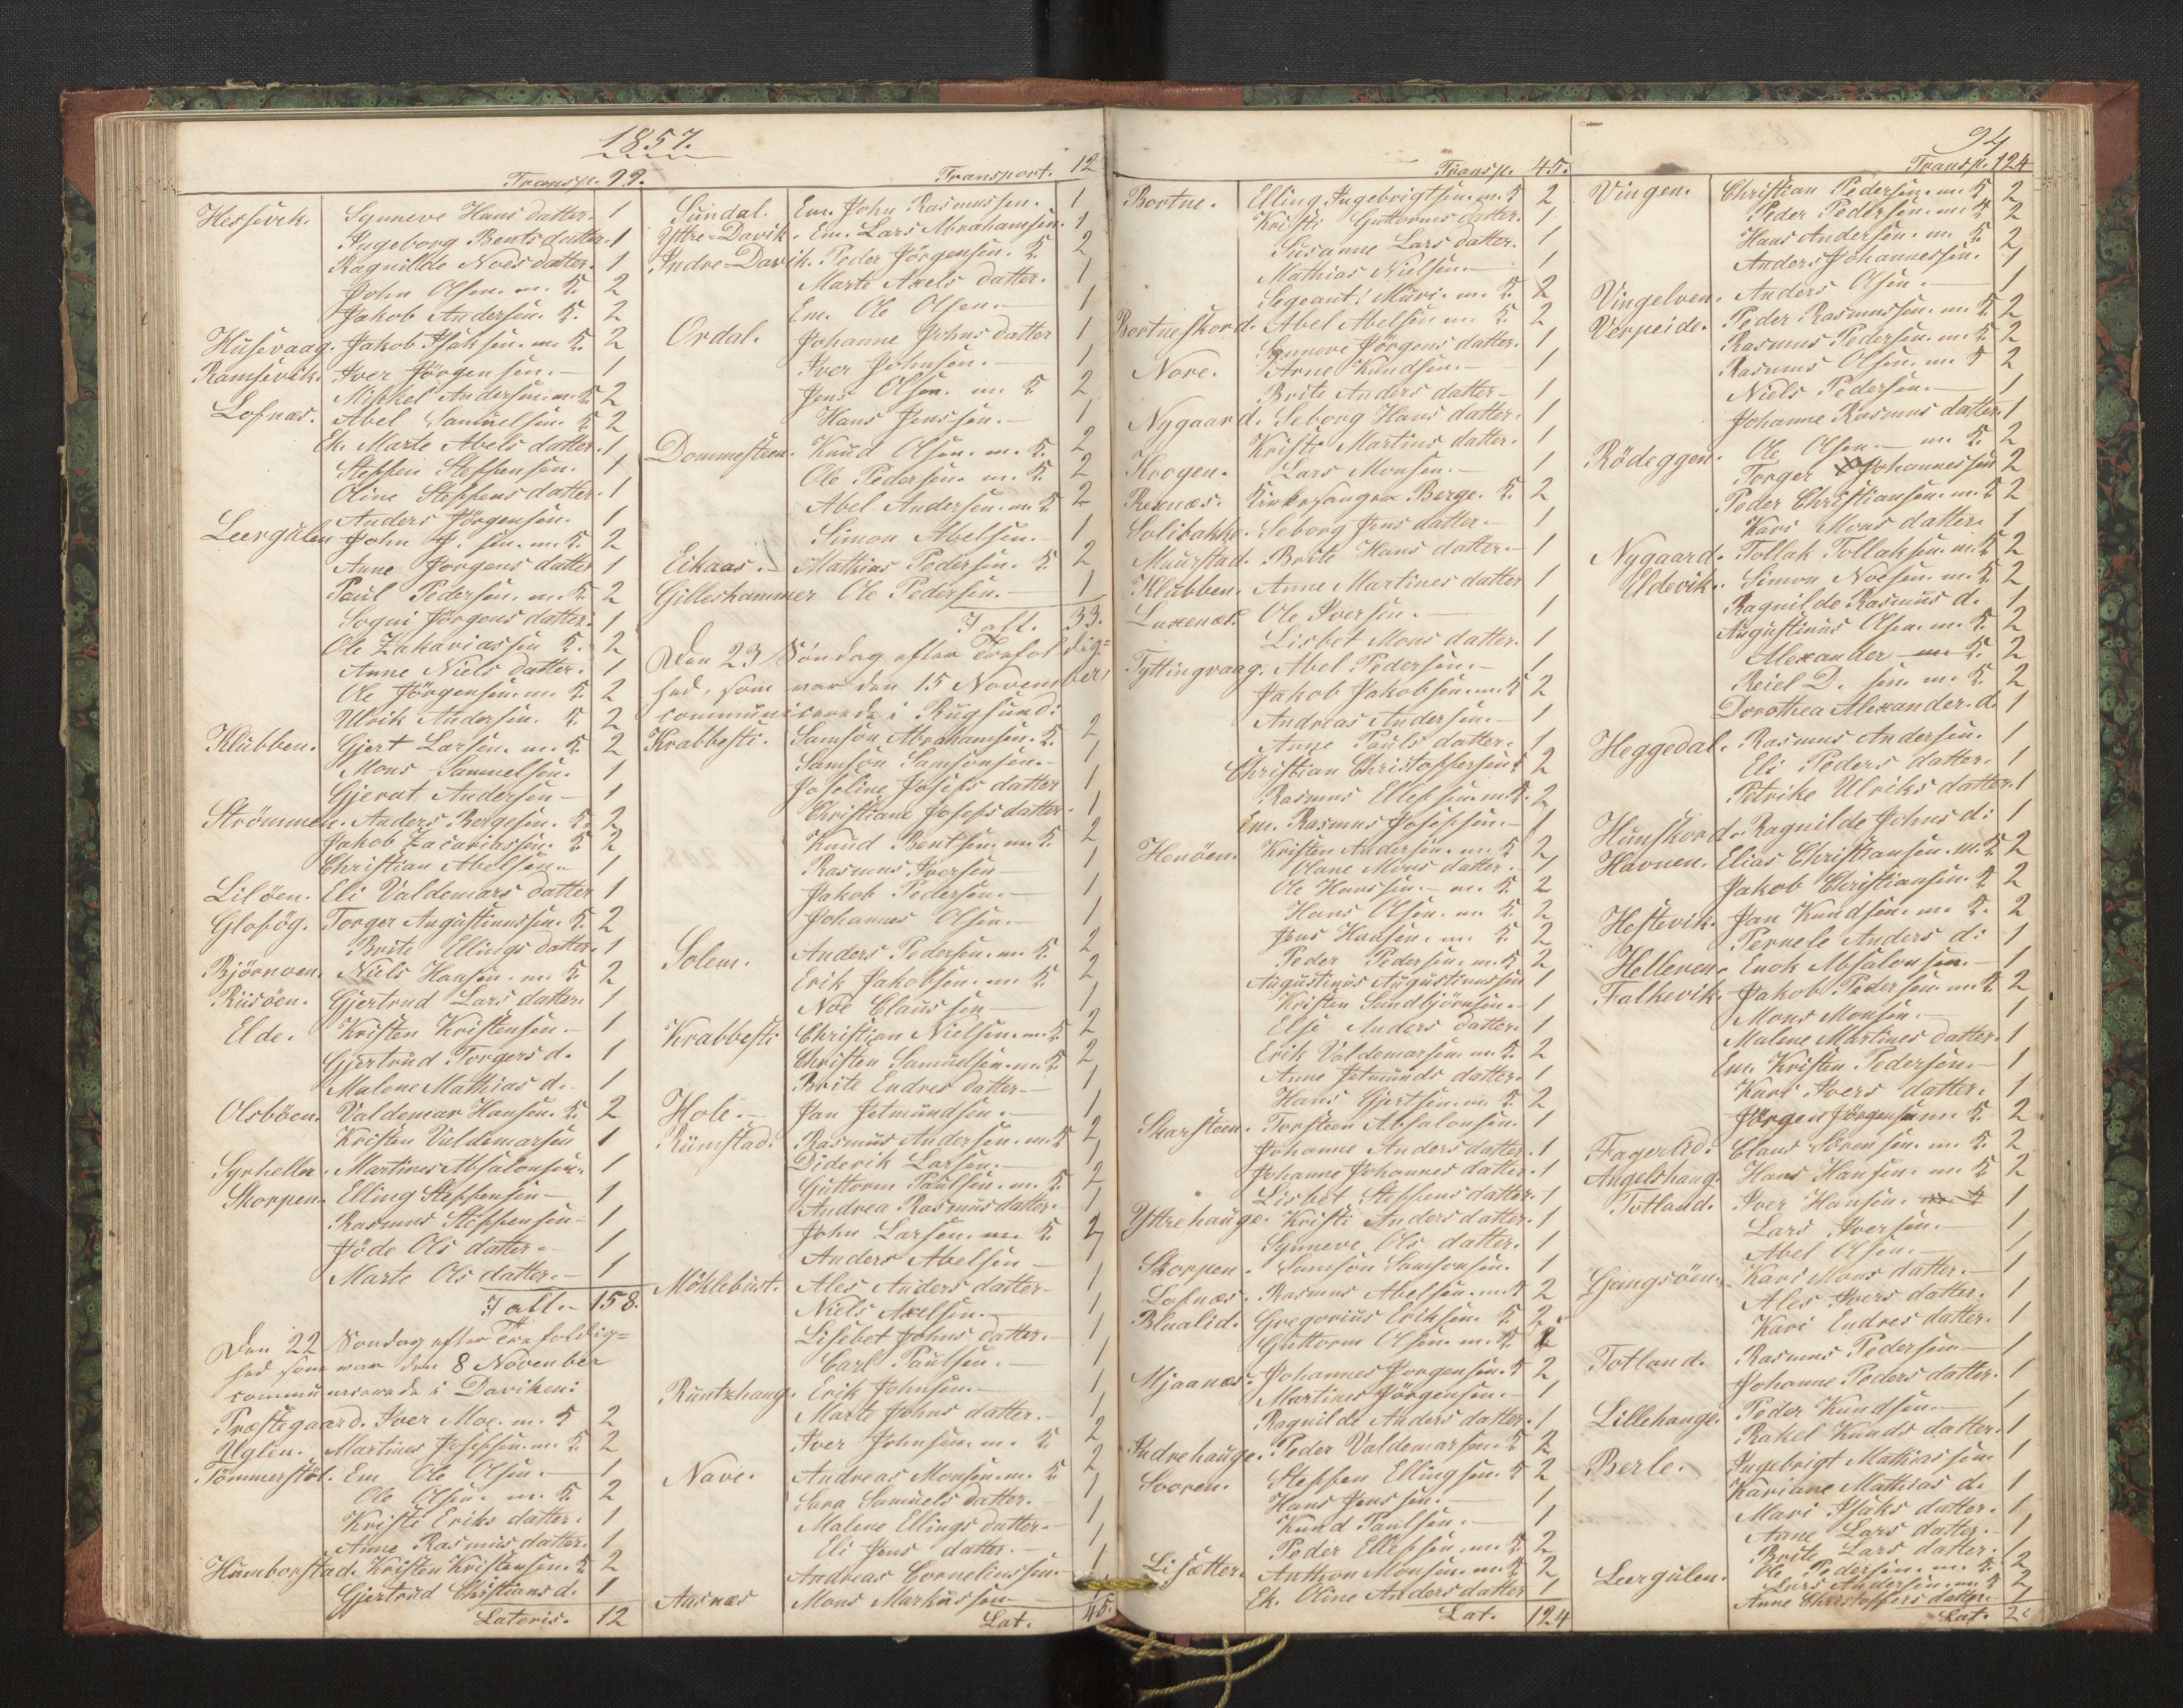 1857.
Transp. 99.
Hessevik. Synneve Hans datter. 1
Ingeborg Bents datter. 1
Ragnilde Noes datter. 1
John Olsen. m. K. 2
Jakob Andersen. K. 2
Husevaag. Jakob Isaksen. m. K. 2
Ramsevik. Iver Jörgensen. – 1
Mikkel Andersen. m. K. 2
Lofnæs. Abel Samuelsen. K. 2
Ek. Marte Abels datter. 1
Steffen Steffensen. 1
Oline Steffens datter. 1
Anders Jörgensen. 1
Leergulen John J. sen. m. K. 2
Anne Jorgens datter 1
Paul Pedersen. m. K. 2
Sogni Jörgens datter. 1
Ole Zakariassen K. 2
Anne Niels datter. 1
Ole Jörgensen. m. K. 2
Ulrik Andersen. K. 2
Klubben. Gjert Larsen. m. K. 2
Mons Samuelsen. 1
Gjerat Andersen – 1
Strömmen. Anders Borgesen. K. 2
Jakob Zacariassen. K 2
Christian Abelsen. – 1
Lilöen. Eli Valdemars datter 1
Glosög. Torger Augustinussen. K. 2
Brite Ellings datter. 1
Björnoen. Niels Hansen. m. K. 2
Riisöen. Gjertrud Lars datter. 1
Elde. Kristen Kristensen. – 1
Gjertrud Torgers d. 1
Malene Mathias d. 1
Olsböen. Valdemar Hansen. K. 2
Kristen Valdemarsen 1
Syrheller. Martines Absalonsen. 1
Skorpen. Elling Steffensen – 1
Rasmus Steffensen – 1
Jöde Ols datter – 1
Marte Ols datter. – 1
Tall. – 158.
Den 22 Sondag efter Trefoldig=
hed som var den 8 November
communiserede i Daviken:
Præstegaard. Iver Moe. m. K 2
Uglen. Martines Josefsen. m. K. 2
Tömmerstöl. Em Ole Olsen. – 1
Ole Olsen. m. K. 2
Kristi Eriks datter. 1
Anne Rasmus datter. 1
Humborstad. Kristen Kristensen. K 2
Gjertrud Christians d. 1
Lateris. 12
Transport. 12
Sundal. Em. John Rasmussen. 1
Yttre=Davik. Em. Lars Abrahamsen. 1
Indre=Davik. Peder Jörgensen. K. 2
Marte Axels datter. 1
Em. Ole Olsen. – 1
Ordal. Johanne Johns datter 1
Iver Johnsen. – 1
Jens Olsen. m. K 2
Hans Jenssen. – 1
Dommesteen. Knud Olsen. m. K. 2
Ole Pedersen. m. K. 2
Abel Andersen. m. K 2
Simon Abelsen. – 1
Eikaas. – Mathias Pedersen. K 2
Gilleshammer Ole Pedersen. – 1
Tall. 33.
Den 23 Söndag efter Trefoldig=
hed, som var den 15 November,
communicerede i Rugsund:
Krabbesti. Samson Abrahamsen. K. 2
Samson Samsonsen. – 1
Joseline Josefs datter 1
Christiane Josefs datter. 1
Knud Bentsen. m. K. 2
Rasmus Iversen – 1
Jakob Pedersen. – 1
Johannes Olsen. – 1
Solem. Anders Pedersen. m. K. 2
Erik Jakobsen. m K 2
Noe Claussen – 1
Krabbesti Christian Nielsen. m. K 2
Christen Samuelsen. m. K 2
Brite Endres datter – 1
Hole. – Jan Jetmundsen. – 1
Rumstad. Rasmus Andersen. m. K 2
Diderik Larsen. – 1
Guttorm Paulsen. m. K 2
Andrea Rasmus datter. – 1
John Larsen. m. K. 2
Anders Abelsen – 1
Möklebust. Ales Anders datter – 1
Niels Axelsen. – 1
Lisebet Johns datter. – 1
Carl Paulsen. – 1
Runtzhaug. Erik Johnsen. – 1
Marte Johns datter. – 1
Iver Johnsen. m. K. 2
Nave. Andreas Monsen. m. K 2
Sara Samuels datter. – 1
Malene Ellings datter. – 1
Eli Jens datter. – 1
Andreas Corneliussen – 1
Aasnæs Mons Markussen – 1
Lat. 45.
Transp. 45.
Bortne. Elling Ingebrigtsen. m. K 2
Kristi Guttorms datter. 1
Susanne Lars datter. 1
Mathias Nielsen. – 1
Segeant: Muri. m. K. 2
Bortneskord. Abel Abelsen m K. 2
Synneve Jörgens datter. 1
Nore. Arne Knudsen. – 1
Brite Anders datter – 1
Nygaard. Seborg Hans datter. 1
Kristi Martins datter. 1
Krogen. Lars Monsen. – 1
Rexnæs. Kirkesanger Berge. K. 2
Solibakke. Seborg Jens datter. – 1
Maurstad. Brite Hans datter. – 1
Klubben. Anne Martines datter 1
Luxenæs. Ole Iversen. – 1
Lisbet Mons datter. 1
Tyttingvaag. Abel Pedersen. – 1
Jakob Jakobsen. m. K 2
Andreas Andersen. – 1
Anne Pauls datter. 1
Christian Christoffersen K 2
Rasmus Ellefsen. m. K. 2
Em. Rasmus Josefsen. – 1
Henöen. Kristen Andersen. m. K 2
Olane Mons datter. – 1
Ole Hanssen. – m. K 2
Hans Olsen. m. K. 2
Jens Hansen. m. K. 2
Peder Pedersen. m. K 2
Augustinus Augustinussen 1
Kristen Sandbjörnsen. – 1
Else Anders datter 1
Erik Valdemarsen m. K. 2
Anne Jetmunds datter. 1
Hans Gjertsen. m. K 2
Skarsteen. Torsteen Absalonsen. 1
Johanne Anders datter. 1
Johanne Johannes datter. 1
Lisbet Steffens datter. 1
Yttrehauge. Kristi Anders datter. 1
Synneve Ols datter. 1
Skorpen. Samson Samsonsen. 1
Lofnæs. Rasmus Abelsen. m. K 2
Blaalid. Gregorius Eriksen. K. 2
Guttorm Olsen. m. K. 2
Mjaanæs. Johannes Jorgensen. K 2
Martines Jörgensen. – 1
Ragnilde Anders datter. 1
Indrehauge. Peder Valdemarsen. K 2
Svoren. Steffen Ellingsen. K 2
Hans Jenssen. – 1
Knud Paulsen. – 1
Peder Ellefsen. m. K 2
Lisætter. Anthon Monsen. m. K 2
Ek. Oline Anders datter 1
Lat. 124
94
Transp. 124
Vingen. Christian Pedersen. m. K 2
Peder Pedersen. m. K 2
Hans Andersen. m. K 2
Anders Johannessen. 1
Vingelven. Anders Olsen. – 1
Verpeide. Peder Rasmussen. m. K 2
Rasmus Pedersen. m. K 2
Rasmus Olsen. m. K 2
Niels Pedersen. – 1
Johanne Rasmus datter. 1
Rödeggen. Ole Olsen. – m. K. 2
Torger Johannessen 2
Peder Christiansen. m. K 2
Kari Mons datter. 1
Nygaard. Tollak Tollaksen. m. K 2
Udevik. Simon Noesen. m. K. 2
Ragnilde Rasmus d. 1
Augustinus Olsen. m. K. 2
Alexander m K. 2
Reiel D. sen. m. K 2
Dorothea Alexander. d. 1
Heggedal. Rasmus Andersen. 1
Eli Peders datter. 1
Petrike Ulriks datter. 1
Hunskord. Ragnilde Johns d: 1
Havnen. Elias Christiansen. m. K 2
Jakob Christiansen. K 2
Hestevik. Jan Knudsen. m K. 2
Pernele Anders d: 1
Helleren. Enok Absalonsen. – 1
Falkevik. Jakob Pedersen. m. K 2
Mons Monsen. – 1
Malene Martines datter. 1
Em. Kristen Pedersen. – 1
Kari Ivers datter. 1
Jörgen Jörgensen m K. 2
Fagerlid. Claus Sörensen. m. K. 2
Angelshaug. Hans Hansen. m. K 2
Totland. Iver Hansen. 1
Lars Iversen. – 1
Abel Olsen. – 1
Gangsöen. Kari Mons datter. – 1
Ales Ivers datter. 1
Kari Endres datter. 1
Totland. Rasmus Pedersen. – 1
Johanne Peders datter. 1
Lillehauge. Peder Knudsen. – 1
Rakel Knuds datter. 1
Berle. Ingebrigt Mathiassen 1
Kariane Mathias d. 1
Mari Isaks datter. 1
Anne Lars datter. – 1
Brite Lars datter. 1
Leergulen. Ole Pedersen. m. K. 2
Lars Andersen. m. K 2
Anne Christoffers datter. 1
Lat.